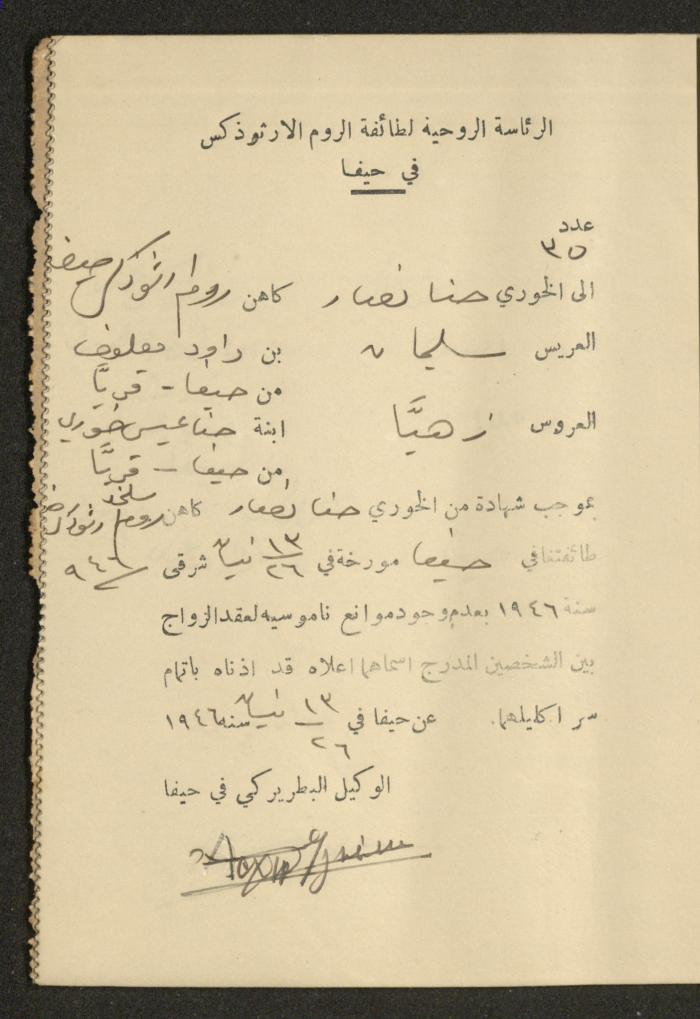 الرئاسة الروحية لطائفة الروم الارثوذكس
في حيفا
عدد
٣٥
الى الخوري حنا نصار كاهن روم ارثوذكس حيفا
العريس سليمان بن داود معلوف
من حيفا - قريّا
العروس زهيّا ابنة حنا عيسى خوري
من حيفا - قريّا
بموجب شهادة من الخوري حنا نصار كاهن روم ارثوذكس
طائفتنا في حيفا مورخة في ١٣/٢٦ نيسان شرقي ٩٤٦
سنة ١٩٤٦ بعدم وجود موانع ناموسيه لعقد الزواج
بين الشخصين المدرج اسماهما اعلاه قد اذناه باتمام
سر اكليلهما. عن حيفا في ١٣/٢٦ نيسان سنه ١٩٤٦
الوكيل البطريركي في حيفا